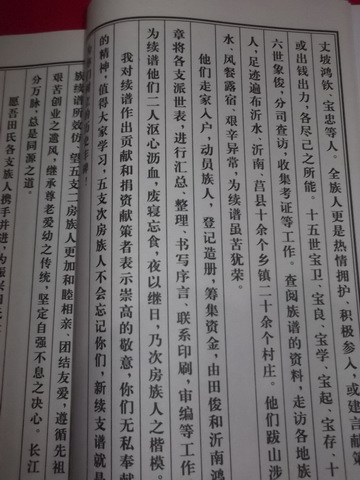 丈坡鸿钦、宝忠等人。全族人更是热情拥护、积极参入，或建言献策
或出钱出力，各尽己之所能。十五世宝卫、宝良、宝学、宝起、宝存、十
六世象俊，分司查访，收集考证等工作。查阅族谱的资料，走访各地族
人，足迹遍布沂水、沂南、莒县十余个乡镇二十余个村庄。他们跋山涉
水、风餐露宿、艰辛异常，为续谱虽苦犹荣。
他们走家入户，动员族人，登记造册，筹集资金，由田俊和沂南鸿
章将各支派世表、进行汇总、整理、书写序言、联系印刷，审编等工作
为续谱他们二人沤心沥血，废寝忘食，夜以继日，乃次房族人之楷模。
我对续谱作出贡献和捐资献策者表示崇高的敬意，你们无私奉献
的精神，值得大家学习，五支次房族人不会忘记你们，新续支谱就是
族续谱所效仿、望五支二房族人更加和睦相亲、团结友爱，遵循先祖
艰苦创业之遗风，继承尊老爱幼之传统，坚定自强不息之决心。长江
分万脉、总是同源之道。
愿吾田氏各支族人携手并进，为振兴